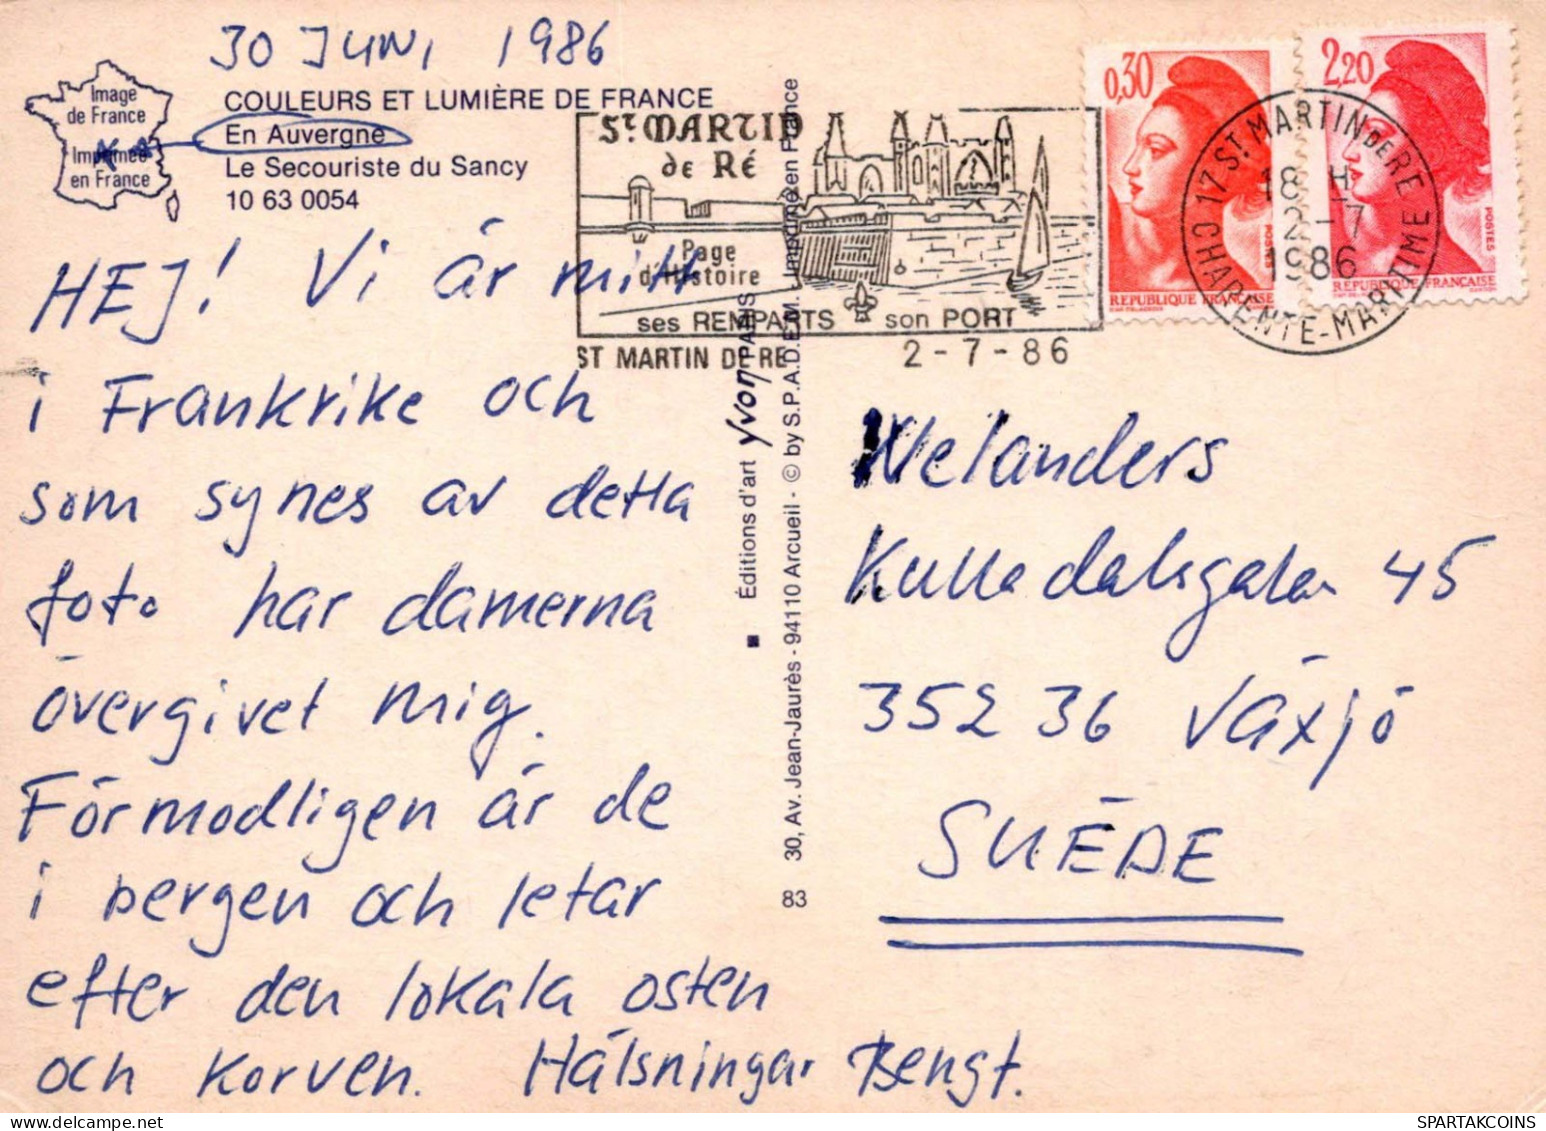 30 JUNI 1986
Image
de France
Imprimée
en France
COULEURS ET LUMIÈRE DE FRANCE
En Auvergne
Le Secouriste du Sancy
10 63 0054
HEJ! Vi är mitt
i Frankrike och
som synes av detta
foto har damerna
övergivet mig.
Förmodligen är de
i bergen och letar
efter den lokala osten
och korven. Hälsningar Bengt.
St MARTIN
de Ré
Page
d'Histoire
ses REMPARTS son PORT
ST MARTIN DE RE 2-7-86
0,30
POSTES
REPUBLIQUE FRANÇAISE
2,20
POSTES
REPUBLIQUE FRANÇAISE
17 ST MARTIN DE RE
18 H
2-7
1986
CHARENTE-MARITIME
Éditions d'art yvon PARIS
30, Av. Jean-Jaurès - 94110 Arcueil - © by S.P.A.D.E.M. - Imprimé en France
83
Welanders
Kulladalsgatan 45
352 36 Växjö
SUÈDE
SPARTAKCOINS.COM